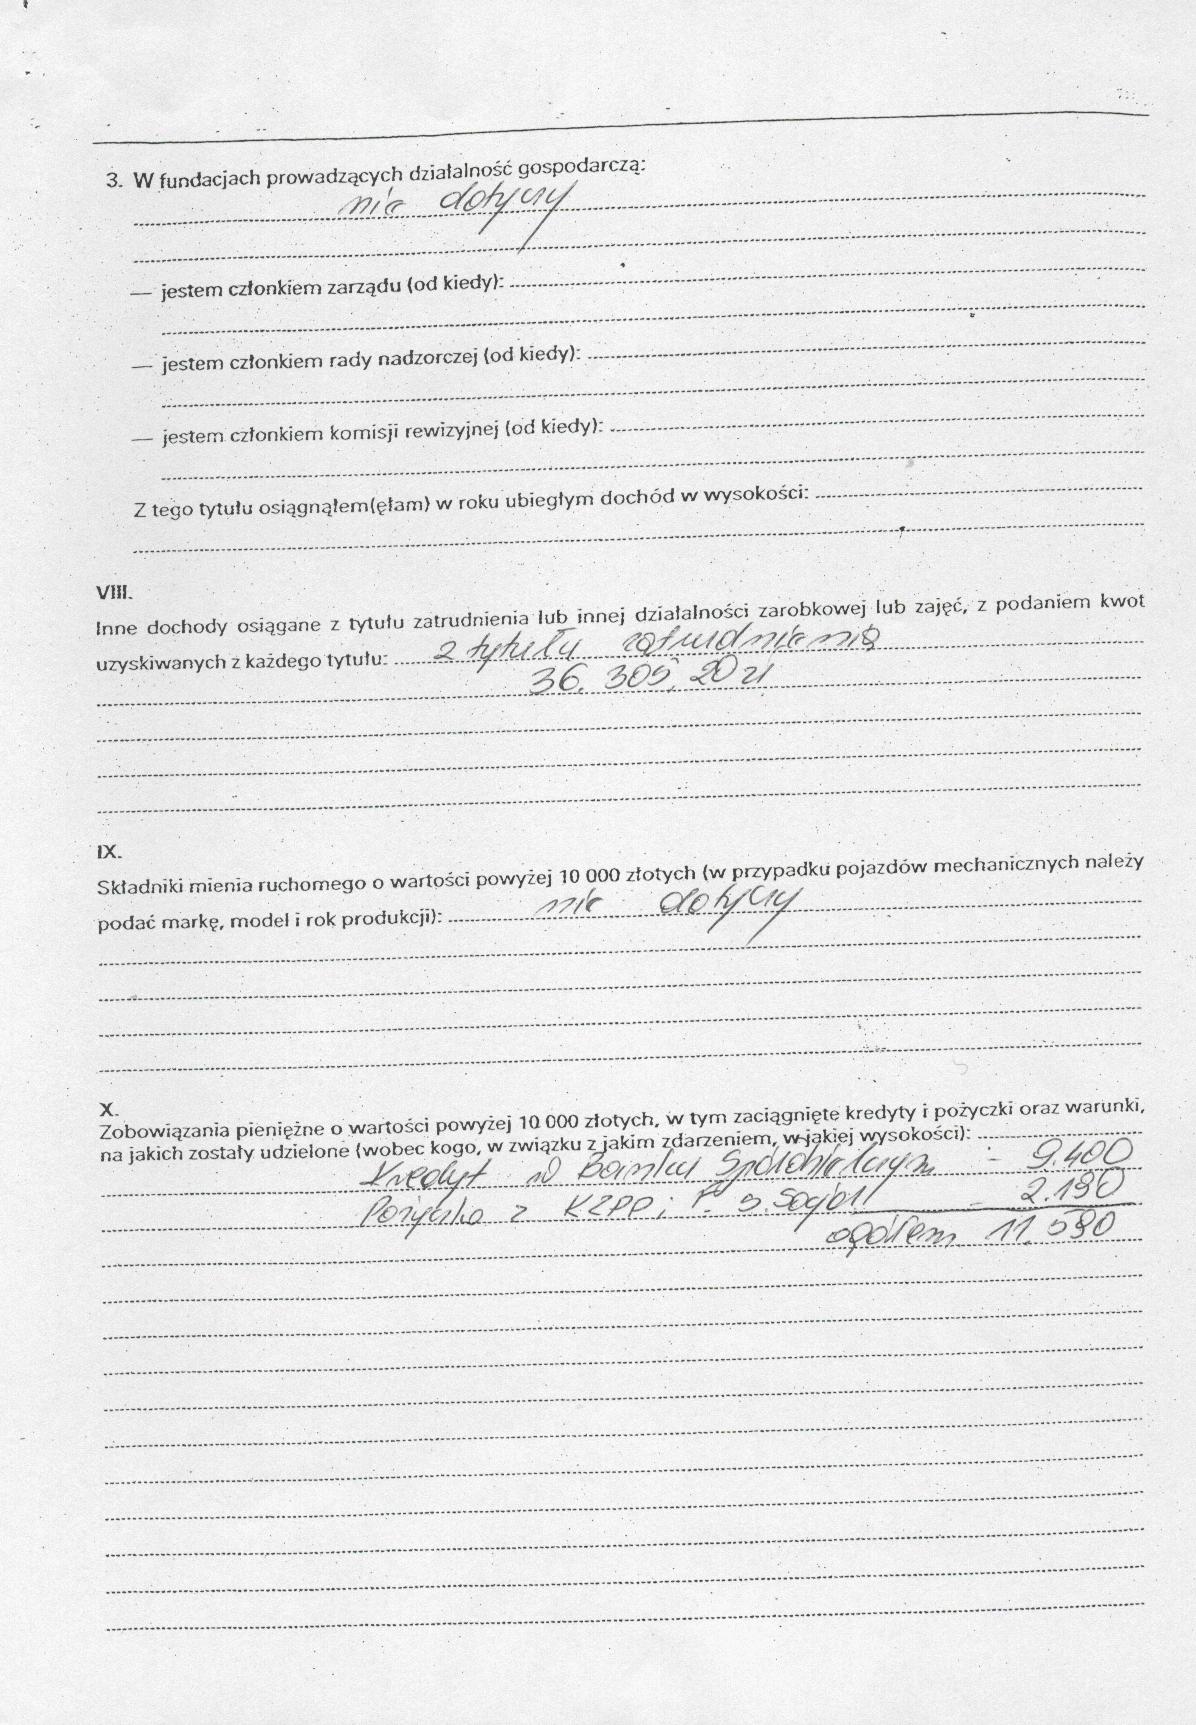 3. W fundacjach prowadzących działalność gospodarczą:
nie dotyczy
— jestem członkiem zarządu (od kiedy):
— jestem członkiem rady nadzorczej (od kiedy):
— jestem członkiem komisji rewizyjnej (od kiedy):
Z tego tytułu osiągnąłem(ęłam) w roku ubiegłym dochód w wysokości:
VIII.
Inne dochody osiągane z tytułu zatrudnienia lub innej działalności zarobkowej lub zajęć, z podaniem kwot
uzyskiwanych z każdego tytułu: z tytułu zatrudnienia
36.305,20 zł
IX.
Składniki mienia ruchomego o wartości powyżej 10 000 złotych (w przypadku pojazdów mechanicznych należy
podać markę, model i rok produkcji): nie dotyczy
X.
Zobowiązania pieniężne o wartości powyżej 10 000 złotych, w tym zaciągnięte kredyty i pożyczki oraz warunki,
na jakich zostały udzielone (wobec kogo, w związku z jakim zdarzeniem, w jakiej wysokości):
Kredyt w Banku Spółdzielczym - 9.400
Pożyczka z KZPP i - 2.190
ogółem 11.590